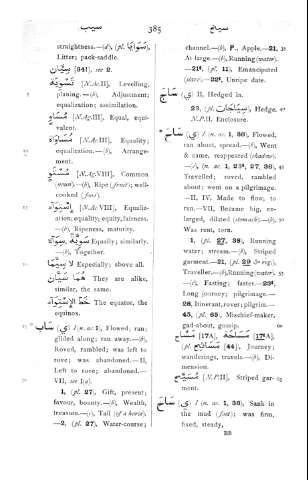 سيب 385 سيح
straightness.—(d), (pl. سَوَايَا),
Litter; pack-saddle.
سِيَّان [34I], see 2.
تَسْوِيَة [N.Ac.II], Levelling,
planing.—(b), Adjustment;
equalisation; assimilation.
مُسَاوٍ [N.Ag.III], Equal, equi-
valent.
مُسَاوَاة [N.Ac.III], Equality;
equalization.—(b), Arrange-
ment.
مُسْتَوٍ [N.Ag.VIII], Common
(noun)—(b), Ripe (fruit); well-
cooked (food).
إِسْتِوَآء [N.Ac.VIII], Equaliz-
ation; equality; equity, fairness.
—(b), Ripeness, maturity.
سَوِيَّةً, سَوَآءً Equally; similarly.
—(b), Together.
لَا سِيَّمَا Expecially; above all.
هُمَا سِيَّان They are alike,
similar, the same.
خَطّ الإِسْتِوَآء The equator, the
equinox.
سَابَ (ي) I (n. ac. 1), Flowed; ran;
glided along; ran away.—(b),
Roved, rambled; was left to
rove; was abandoned.—II,
Left to rove; abandoned.—
VII, see I(a).
1, (pl. 27), Gift, present;
favour, bounty.—(b), Wealth,
treasure.—(c), Tail (of a horse).
—2, (pl. 27), Water-course;
channel.—(b), P., Apple.—21,
At large.—(b), Running (water).
—(pl. 11), Emancipated
(slave).—22, Unripe date.
سَاجَ II, Hedged in.
23, (pl. سِيَاجَات), Hedge.
N.P.II, Enclosure.
سَاحَ (ي) I (n. ac. 1, 36), Flowed,
ran about, spread.—(b), Went
& came, reappeared (shadow).
—(c), (n. ac. 1, 27, 36),
Travelled; roved, rambled
about; went on a pilgrimage.
—II, IV, Made to flow, to
run.—VII, Became big, en-
larged, dilated (stomach).—(b),
Was rent, torn.
1, (pl. 27, 38), Running
water; stream.—(b), Striped
garment.—21, (pl. 29),
Traveller.—(b), Running (water).
—(c), Fasting; faster.—
Long journey; pilgrimage.—
26, Itinerant, rover; pilgrim.—
45, (pl. 65), Mischief-maker,
gad-about, gossip.
مَسَاح [17A], مَسَاحَة [17tA],
(pl. مَسَائِح [44]), Journey;
wanderings, travels.—(b), Di-
mension.
مُسَيَّح [N.P.II], Striped gar-
ment.
سَاخَ (ي) I (n. ac. 1, 38), Sank in
the mud (foot); was firm,
fixed, steady,